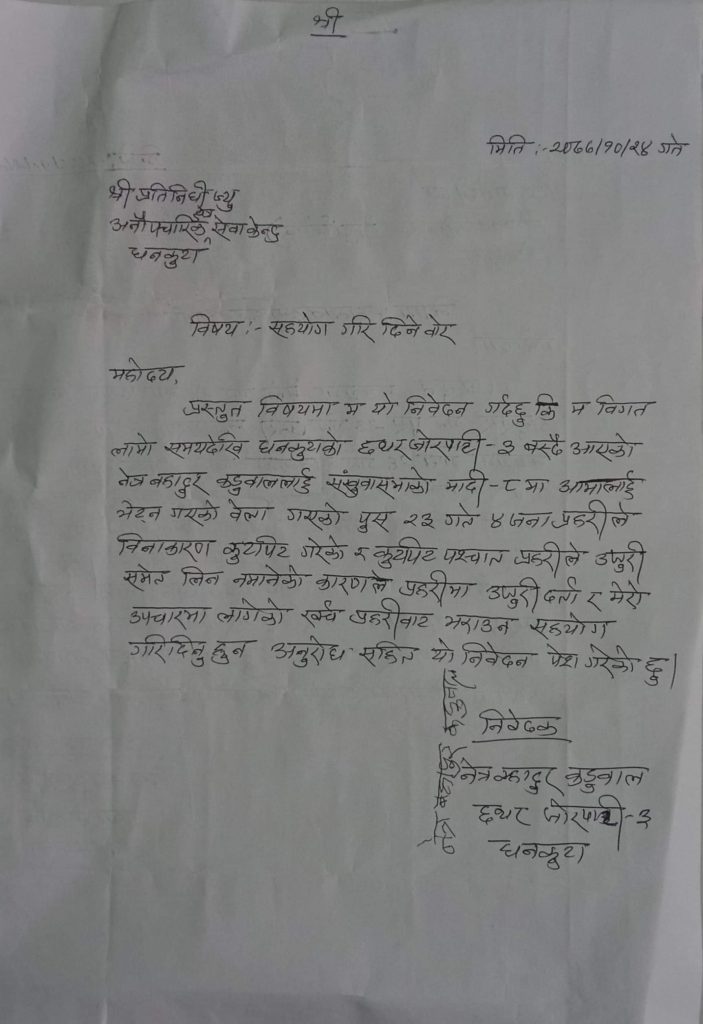 श्री
मिति :- २०७७/१०/२४ गते
श्री प्रतिनिधी ज्यु
अनौपचारिक सेवा केन्द्र
धनकुटा
विषय :- सहयोग गरि दिने बारे
महोदय,
प्रस्तुत विषयमा म यो निवेदन गर्दछु कि म विगत
लामो समयदेखि धनकुटाको छथर जोरपाटी - ३ बस्दै आएको
नेत्र बहादुर कडुवाललाई संखुवासभाको मादी - ८ मा आमालाई
भेट्न गएको वेला गएको पुस २३ गते ४ जना प्रहरीले
विनाकारण कुटपिट गरेको र कुटपिट पश्चात प्रहरीले उजुरी
समेत लिन नमानेको कारणले प्रहरीमा उजुरी दर्ता र मेरो
उपचारमा लागेको खर्च प्रहरीबाट भराउन सहयोग
गरिदिनु हुन अनुरोध सहित यो निवेदन पेश गरेको छु।
निवेदक
नेत्र बहादुर कडुवाल
छथर जोरपाटी - ३
धनकुटा